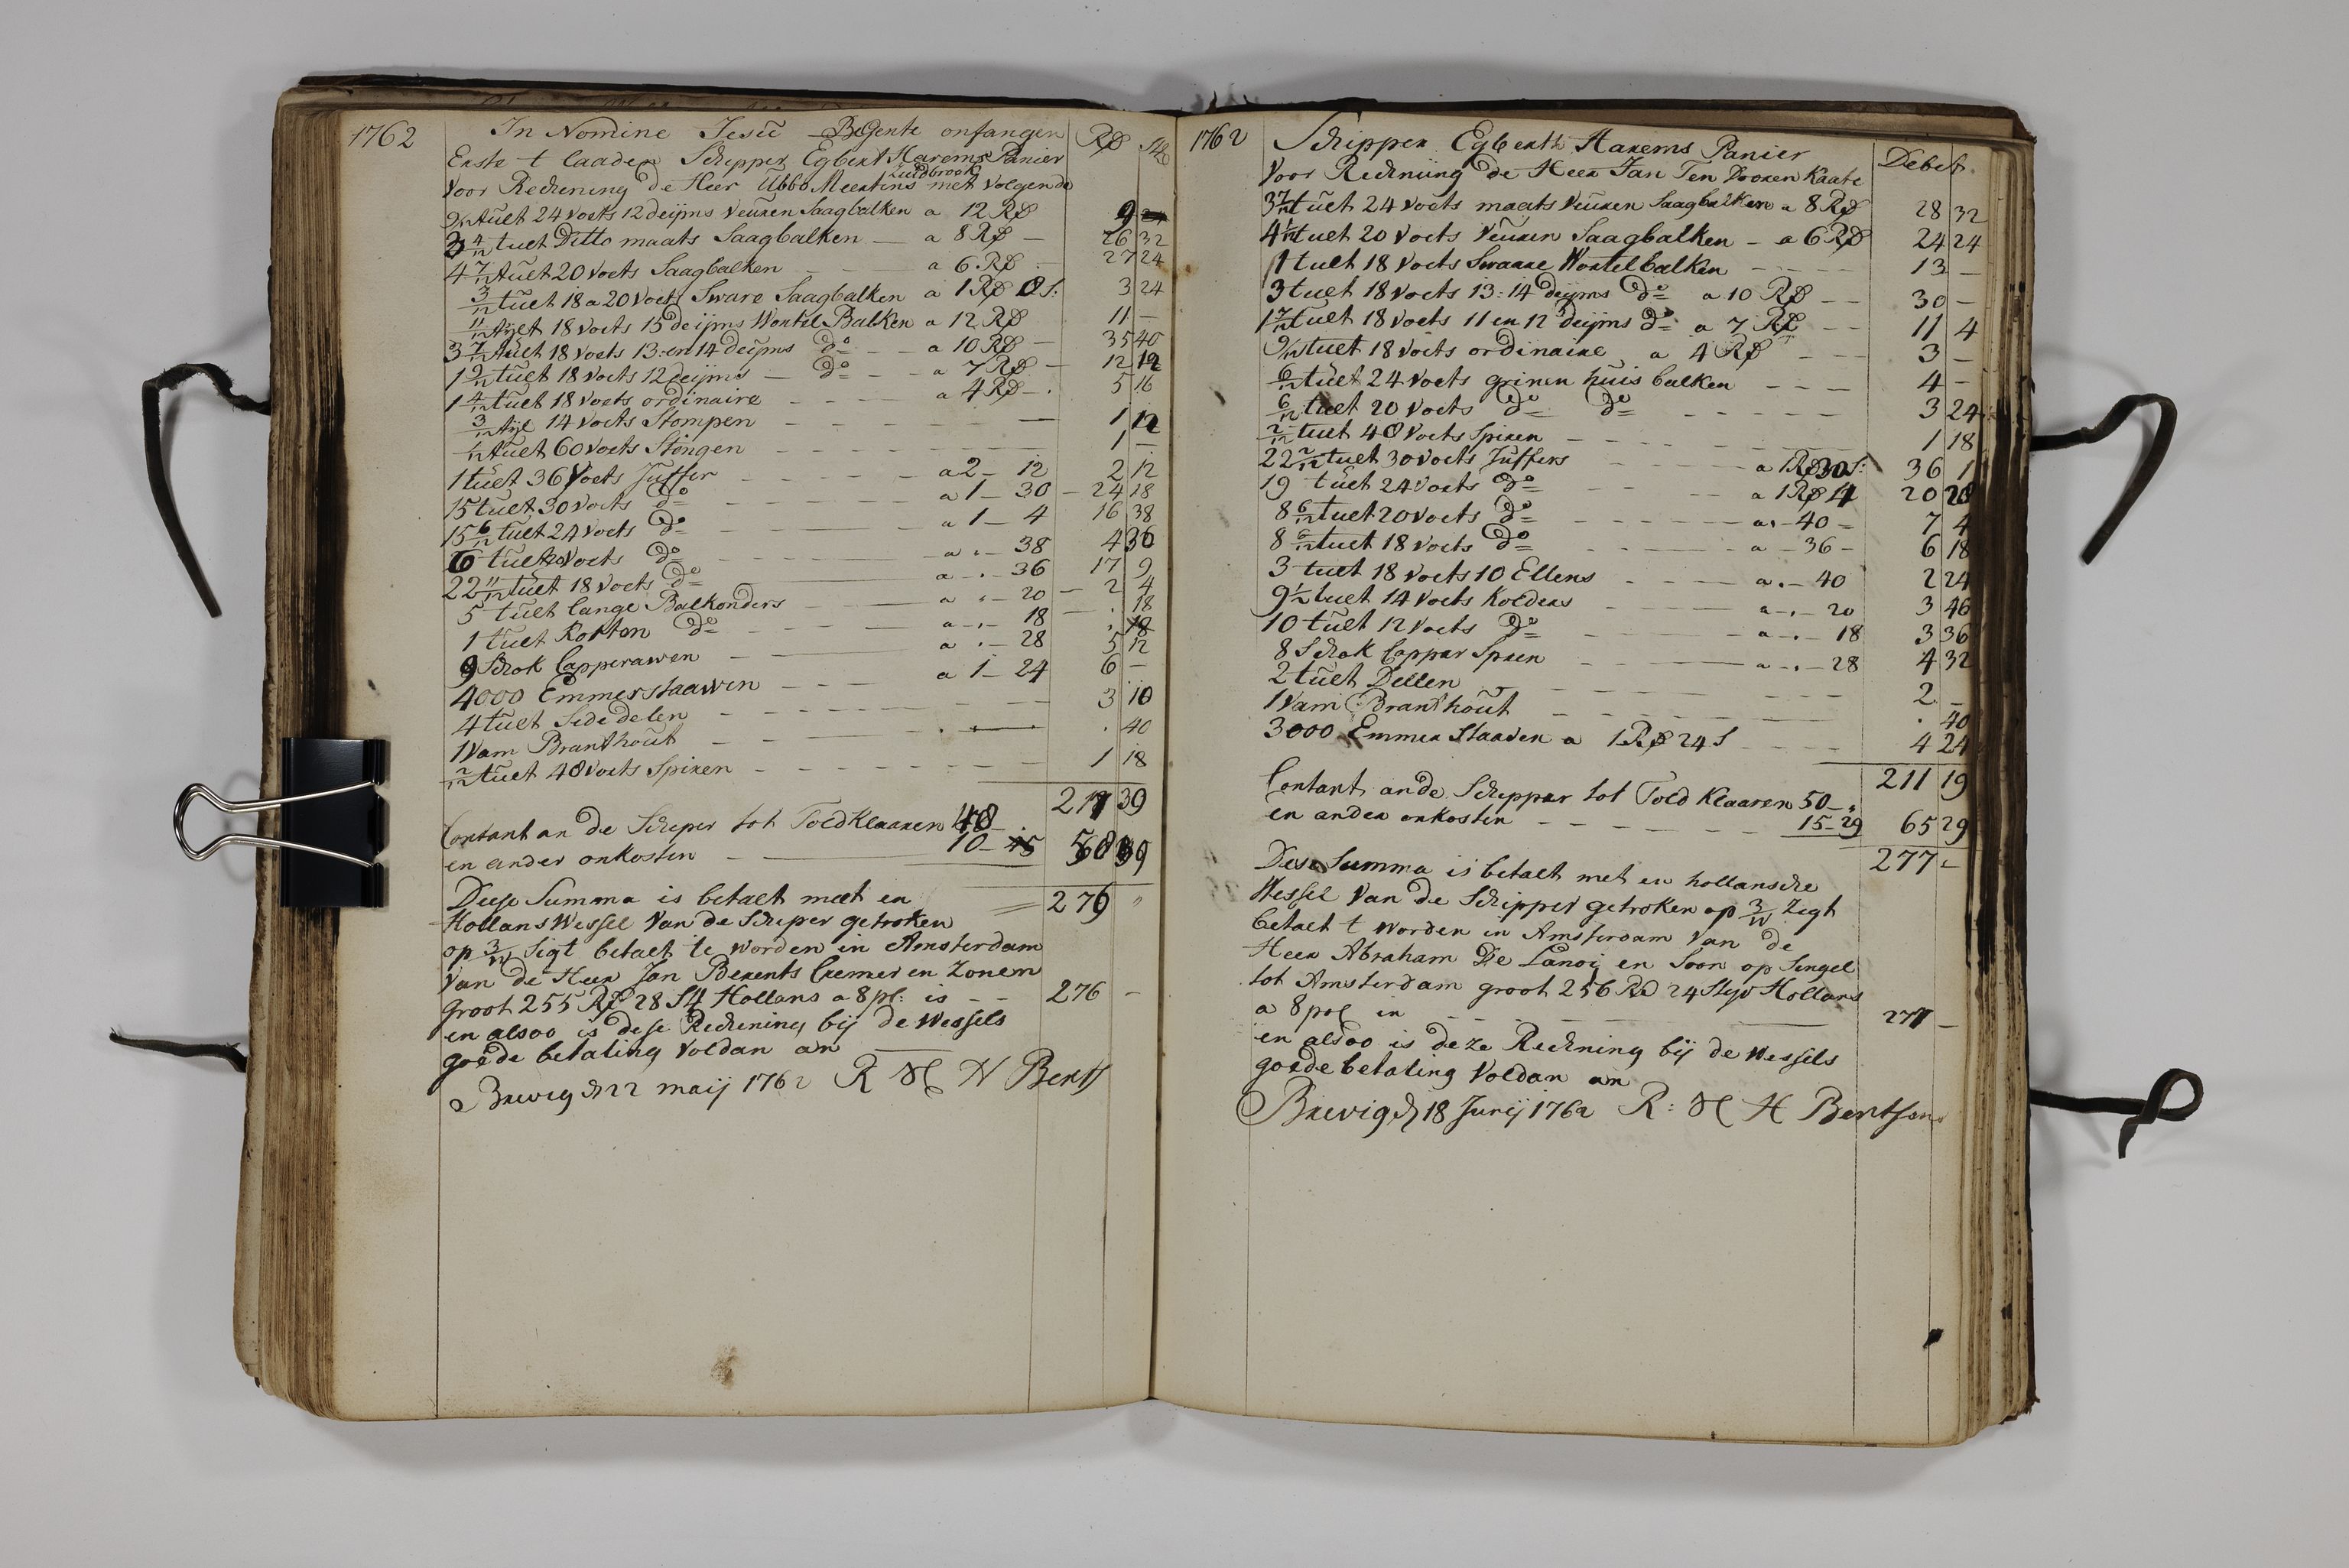 1762
In Nomine Jesu BeGente onfangen RD St
Erste t laaden Schipper Egbert Harems Panier
Zuidbroek
Voor Rechening de Heer Ubbo Meertins met Volgende
9/12 tuet 24 Voets 12 deijms Veuren Saagbalken a 12 RD 9
3 4/12 tuet Ditto maats Saagbalken — a 8 RD — 26 32
4 7/12 tuet 20 Voets Saagbalken a 6 RD — 27 24
3/12 tuet 18 a 20 Voets Sware Saagbalken a 1 RD 0 S: 3 24
11/12 tijlt 18 Voets 15 deijms Wortel Balken a 12 RD 11 —
3 7/12 tuet 18 Voets 13: en 14 deijms do — a 10 RD — 35 40
1 9/12 tuet 18 Voets 12 deijms — do — a 7 RD — 12 12
1 4/12 tuet 18 Voets ordinaire — a 4 RD — 5 16
3/12 tijl 14 Voets Stompen — 1 12
1/12 tuet 60 Voets Stongen — 1 —
1 tuet 36 Voets Juffer — a 2 — 12 2 12
15 tuet 30 Voets do — a 1 — 30 — 24 18
15 6/12 tuet 24 Voets do — a 1 — 4 16 38
6 tuet 20 Voets do — a . — 38 4 36
22 11/12 tuet 18 Voets do — a . — 36 17 9
5 tuet lange Balkonders — a . — 20 — 2 4
1 tuet Korten do — a . — 18 — . 18
9 Schok Capperawen — a . — 28 5 12
4000 Emmerstaawen — a 1 — 24 6 —
4 tuet Sidedelen — 3 10
1 Vam Branthout — . 40
2/12 tuet 40 Voets Spiren — 1 18
217 39
Contant an de Scheper tot Told Klaaren 48 —
en ander onkosten — 10 — 58 39
Deese Summa is betalt meet en 276 "
Hollans Wessel Van de Scheper getroken
op 3/W Sigt betaelt te Worden in Amsterdam
Van de Heer Jan Berents Cremer en Zonen
Groot 255 RD 28 St Hollans a 8 pC: is — 276 —
en alsoo is dese Rechening bij de Wessels
goede betaling Voldan an
Brevig d 22 maij 1762 R H N Berts
1762
Schipper Egberth Harems Panier Debet
Voor Rechning de Heer Jan Ten Dooren Kaate
3 7/12 tuet 24 Voets maats Veuren Saagbalken a 8 RD 28 32
4 1/12 tuet 20 Voets Veuren Saagbalken — a 6 RD 24 24
1 tuet 18 Voets Swaare Wortelbalken — 13 —
3 tuet 18 Voets 13: 14 deijms do a 10 RD — 30 —
1 7/12 tuet 18 Voets 11 en 12 deijms do a 7 RD — 11 4
9/12 tuet 18 Voets ordinaire a 4 RD — 3 —
6/12 tuet 24 Voets grinen huis balken — 4 —
6/12 tuet 20 Voets do do — 3 24
2/12 tuet 40 Voets Spiren — 1 18
22 2/12 tuet 30 Voets Juffers — a 1 RD 30 S: 36 1
19 tuet 24 Voets do — a 1 RD 4 20 28
8 6/12 tuet 20 Voets do — a . — 40 — 7 4
8 6/12 tuet 18 Voets do — a — 36 — 6 18
3 tuet 18 Voets 10 Ellens — a . — 40 2 24
9 1/2 tuet 14 Voets Kolders — a . — 20 3 46
10 tuet 12 Voets do — a . — 18 3 36
8 Schok Cappar Spren — a . — 28 4 32
2 tuet Dellen — 2 —
1 Vam Branthout — . 40
3000 Emmer Staaven a 1 RD 24 S — 4 24
211 19
Contant an de Schippar tot Told Klaaren 50 — "
en ander onkosten — 15 — 29 65 29
Dese Summa is betalt met en hollansche 277 —
Wessel Van de Schipper getroken op 3/W Zegt
betaelt t worden in Amsterdam Van de
Heer Abraham De Lanoij en Soon op Sengel
tot Amsterdam groot 256 RD 24 Styv Hollans
a 8 poC in — 277 —
en alsoo is deze Rechning bij de Wessels
goede betaling Voldan an
Brevig d 18 Junij 1762 R: H H Bertsen